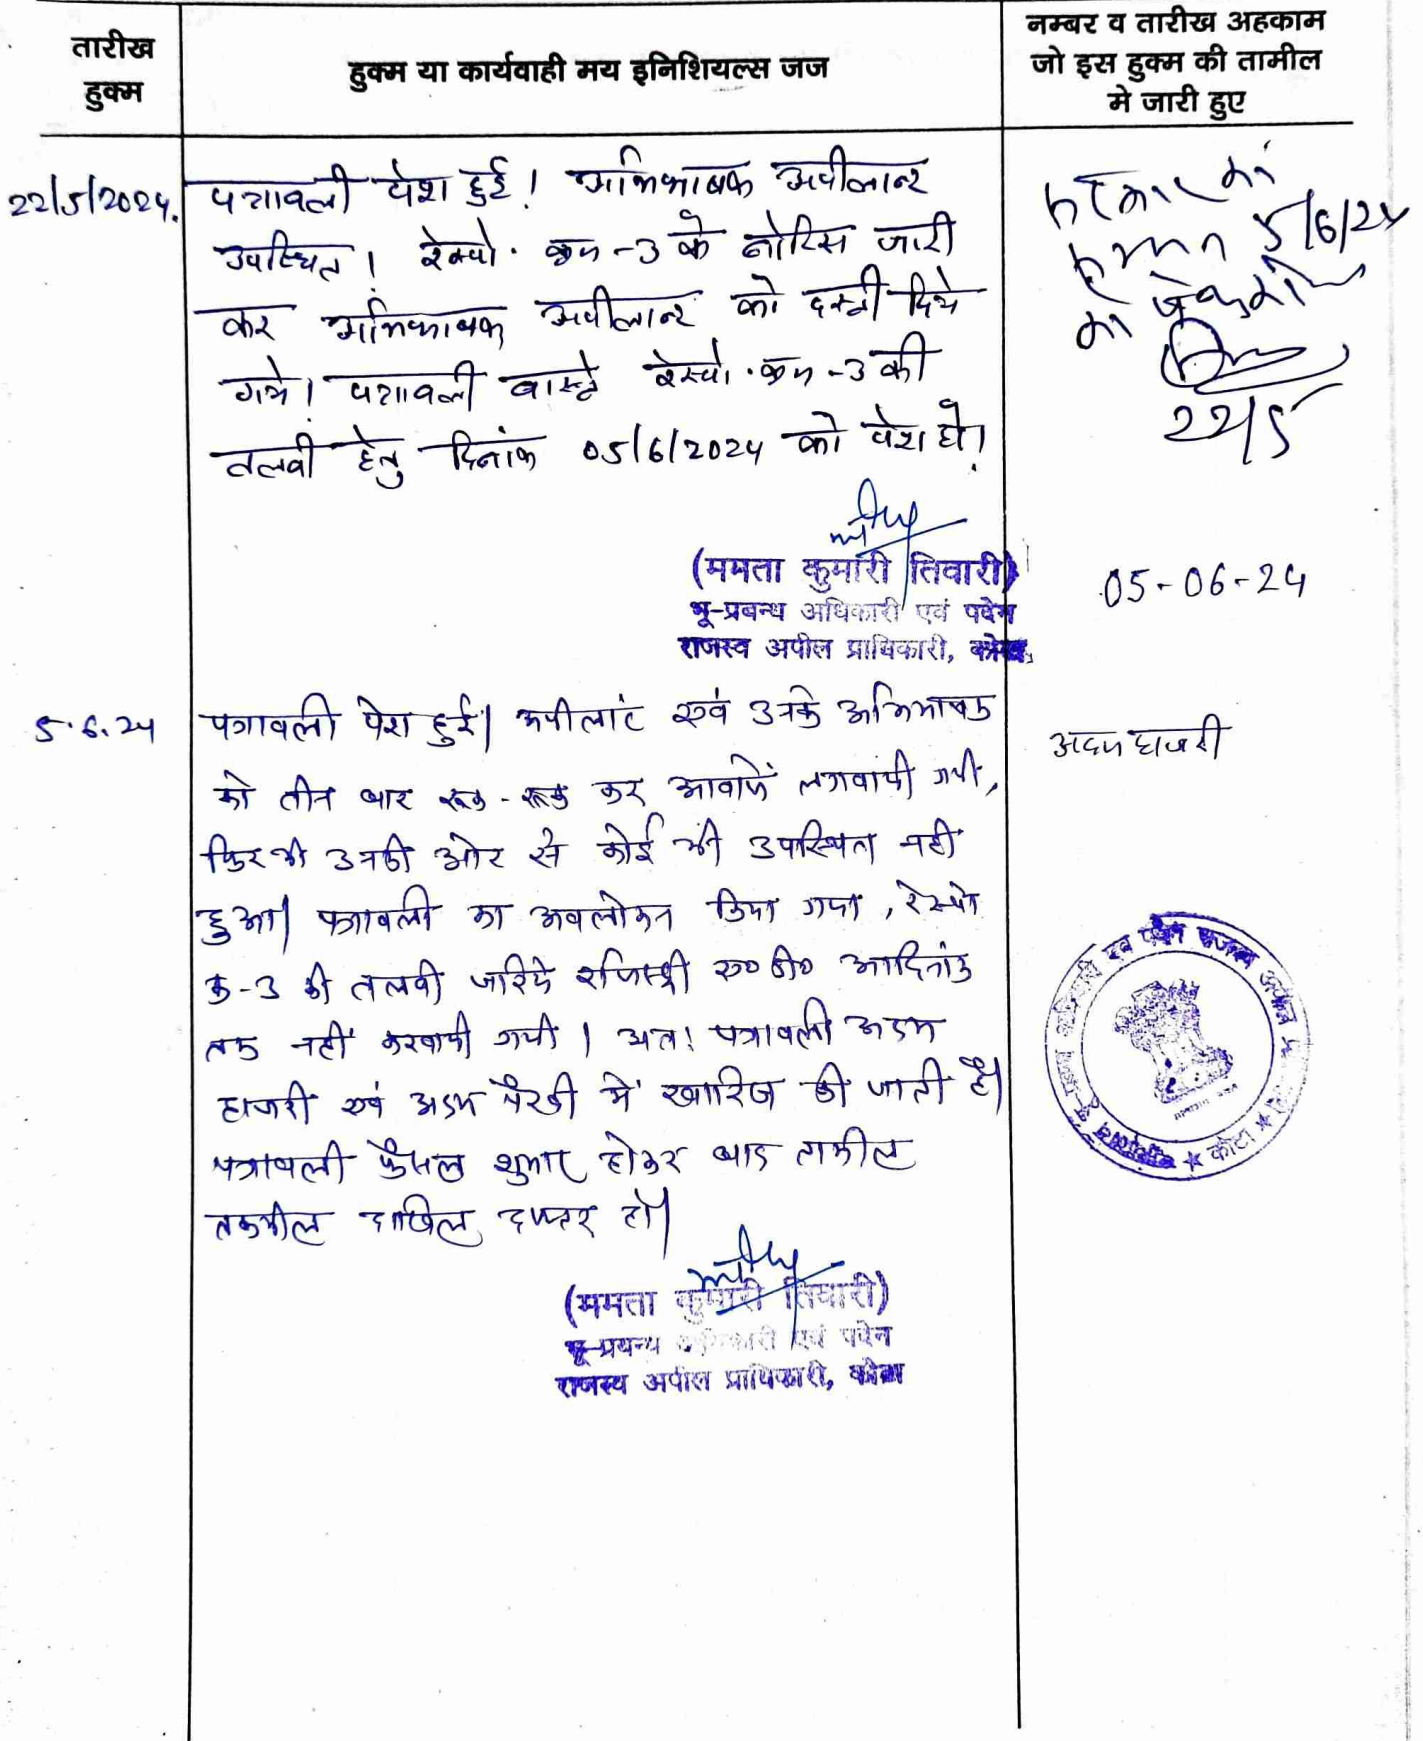 तारीख
हुक्म
हुक्म या कार्यवाही मय इनिशियल्स जज
नम्बर व तारीख अहकाम
जो इस हुक्म की तामील
मे जारी हुए
22/5/2024.
पत्रावली पेश हुई। अभिभाषक अपीलान्ट
उपस्थित। रेस्पो. क्रम-3 के नोटिस जारी
कर अभिभाषक अपीलान्ट को दस्ती दिये
गये। पत्रावली वास्ते रेस्पो. क्रम-3 की
तलवी हेतु दिनांक 05/6/2024 को पेश हो।
5/6/24
22/5
(ममता कुमारी तिवारी)
भू-प्रबन्ध अधिकारी एवं पदेन
राजस्व अपील प्राधिकारी, कोटा
05-06-24
5.6.24
पत्रावली पेश हुई। अपीलांट एवं उनके अभिभाषक
को तीन बार रूक-रूक कर आवाजें लगवायी गयी,
फिर भी उनकी ओर से कोई भी उपस्थित नही
हुआ। पत्रावली का अवलोकन किया गया, रेस्पो
क्र-3 की तलवी जरिये रजिस्ट्री ए०डी० आदिनांक
तक नहीं करवायी गयी। अत: पत्रावली अदम
हाजरी एवं अदम पैरवी में खारिज की जाती है।
पत्रावली फैसल शुमार होकर बाद तामील
तकमील दाखिल दफ्तर हो।
अदम हाजरी
(ममता कुमारी तिवारी)
भू-प्रबन्ध अधिकारी एवं पदेन
राजस्व अपील प्राधिकारी, कोटा
कोटा